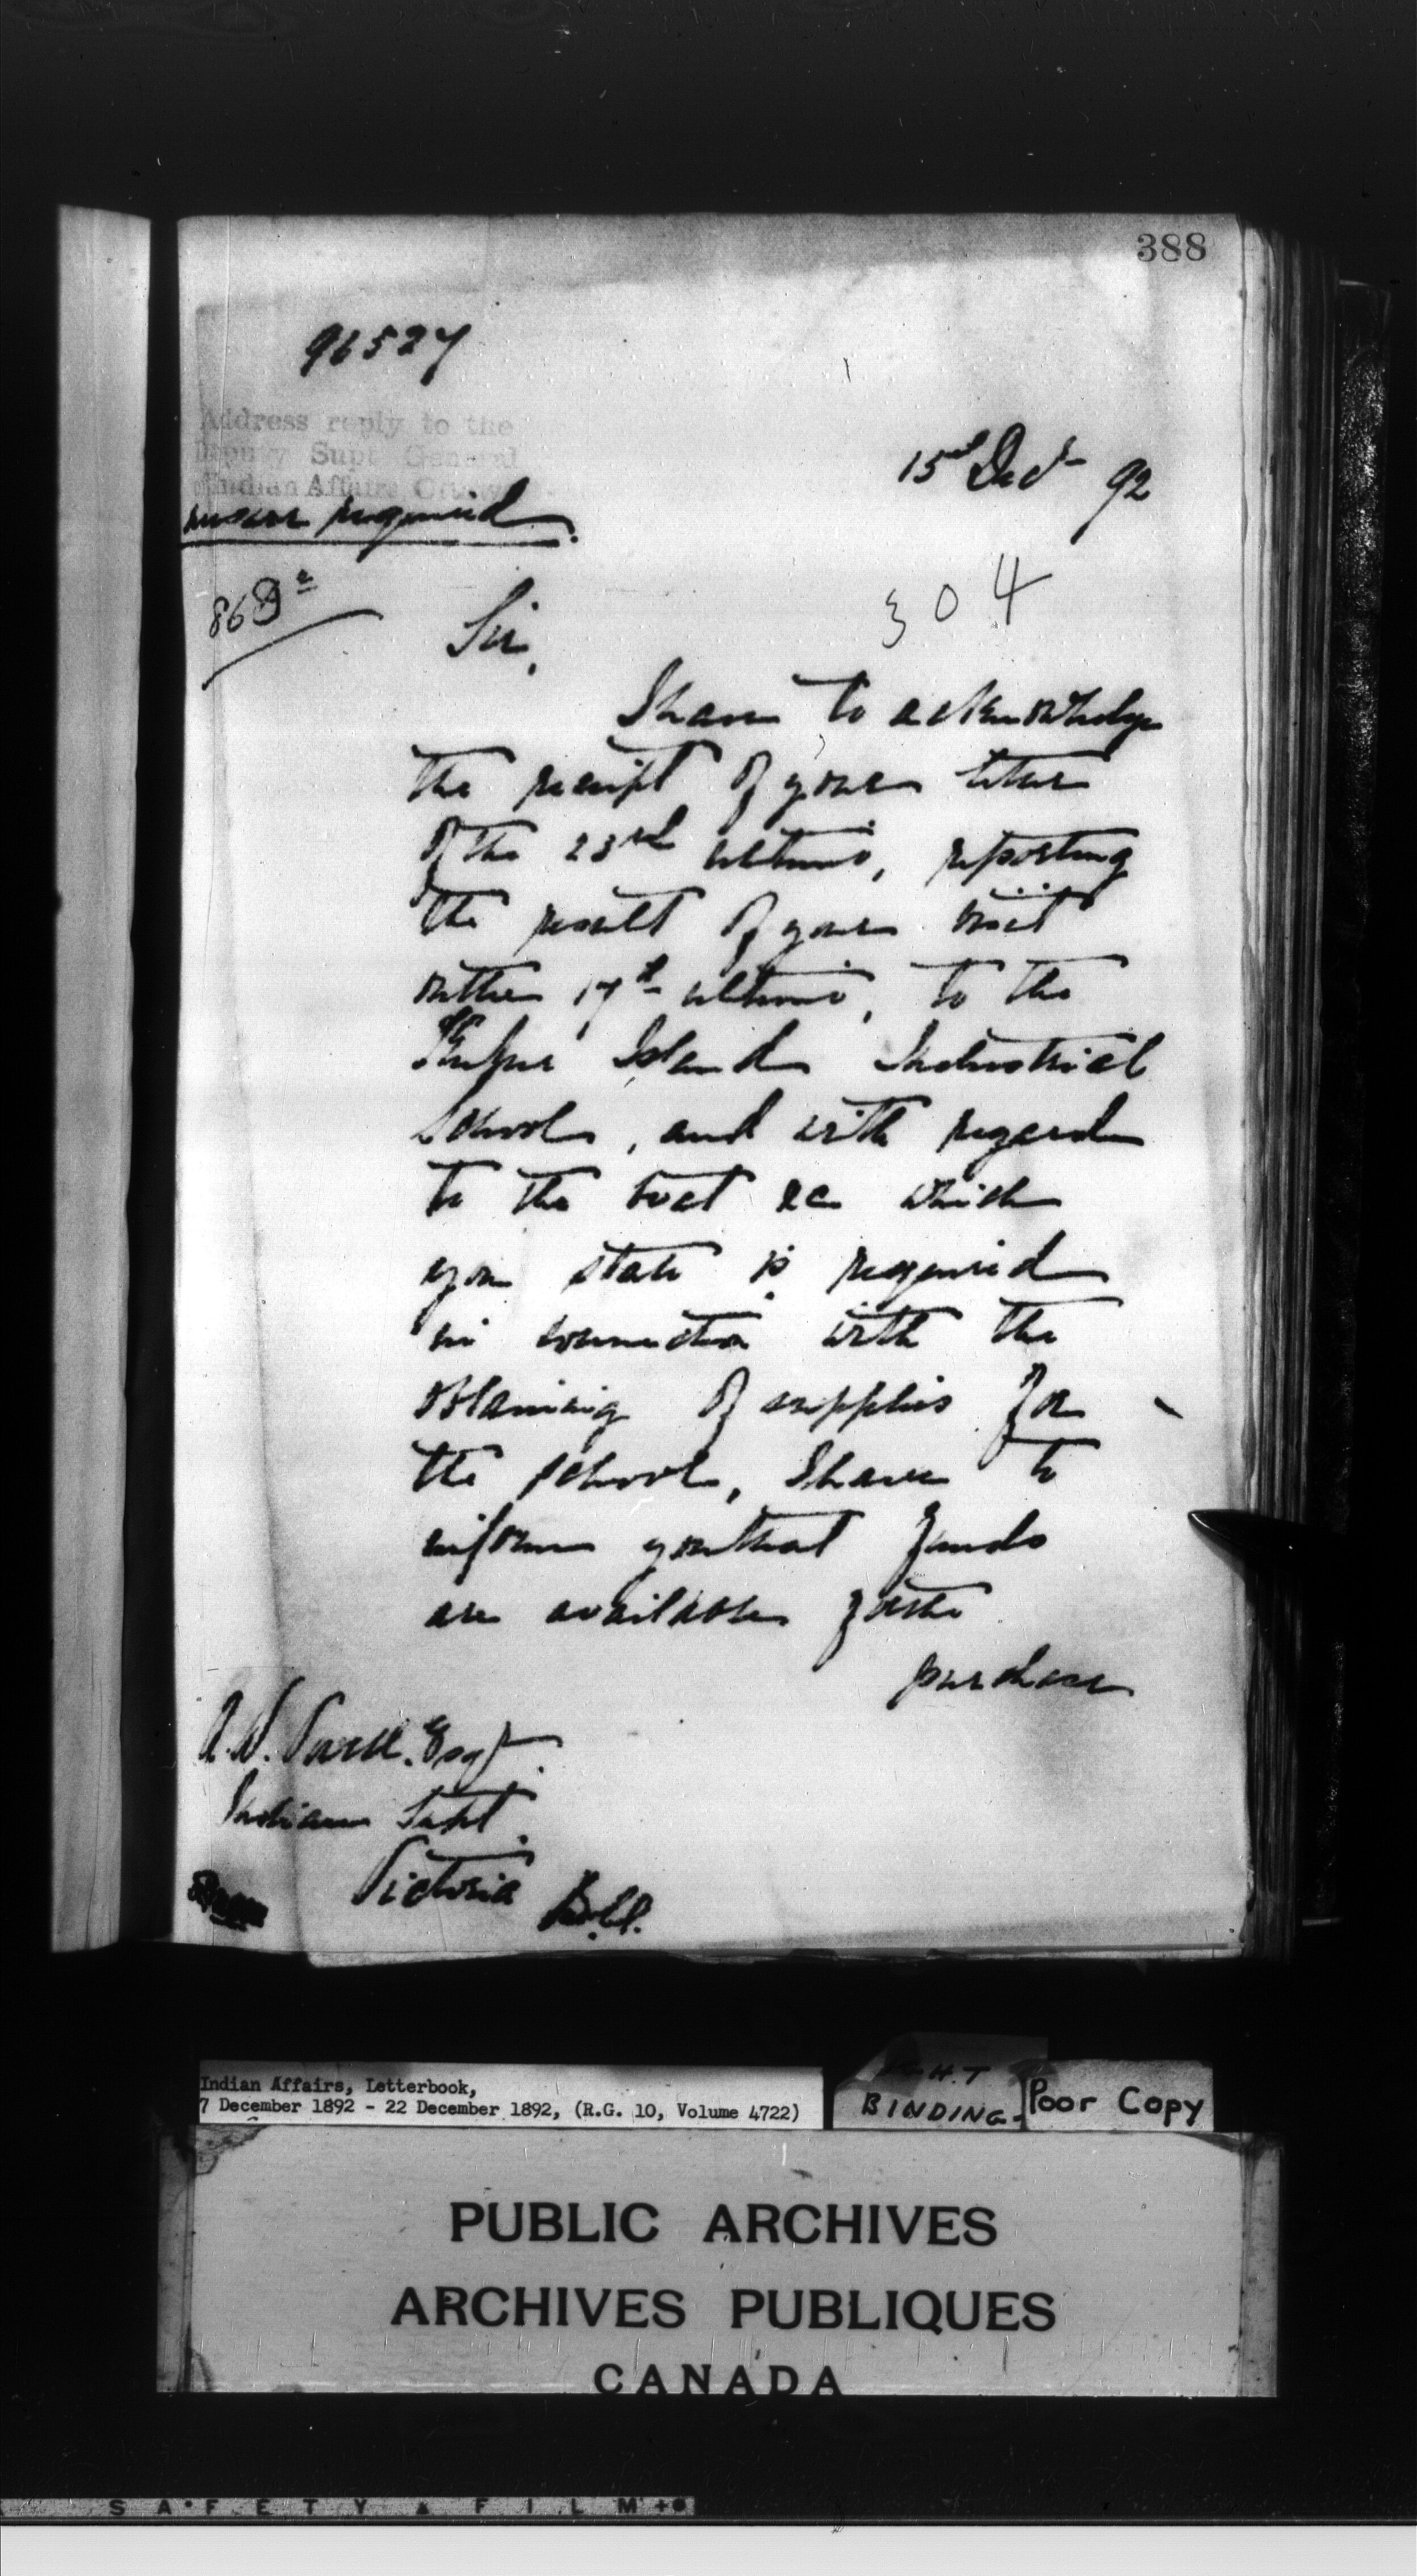 388
96527
Address reply to the
Deputy Supt General
of Indian Affairs Ottawa
Answer required.
15th Decr 92
304
Sir,
I have to acknowledge
the receipt of your letter
of the 23rd ultimo, reporting
the result of your visit
on the 17th ultimo, to the
Kuper Island Industrial
School, and with regard
to the boat &c which
you state is required
in connection with the
obtaining of supplies for
the school, I have to
inform you that funds
are available for the
purchase
A. W. Vowell, Esqr.
Indian Supt.
Victoria B.C.
Indian Affairs, Letterbook,
7 December 1892 - 22 December 1892, (R.G. 10, Volume 4722)
BINDING
Poor Copy
PUBLIC ARCHIVES
ARCHIVES PUBLIQUES
CANADA
SAFETY FILM